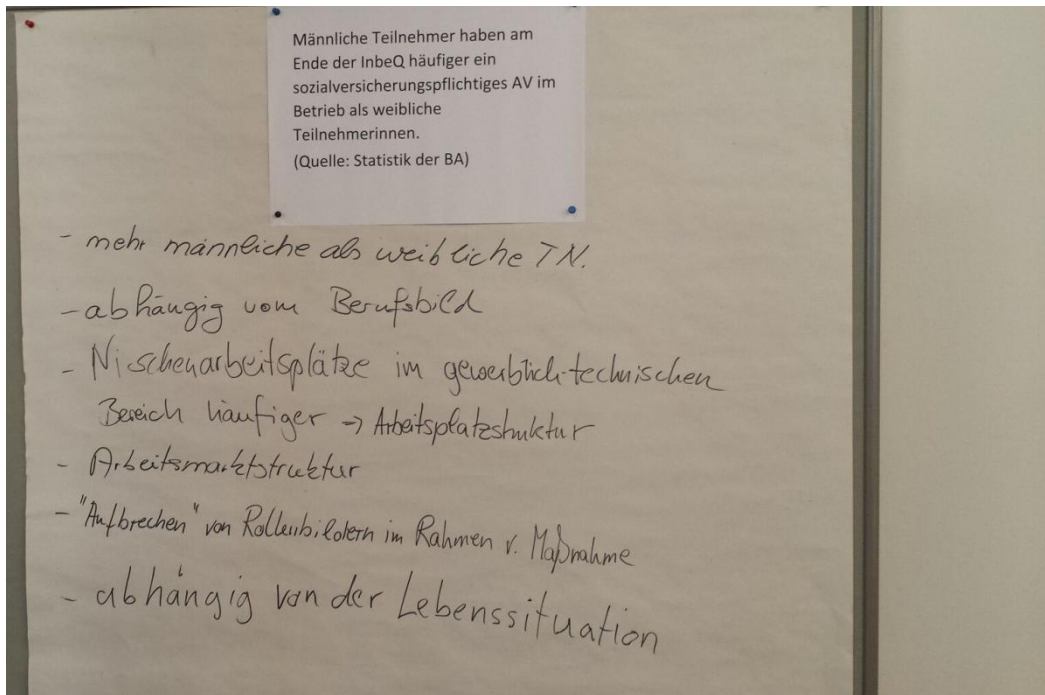 Männliche Teilnehmer haben am
Ende der InbeQ häufiger ein
sozialversicherungspflichtiges AV im
Betrieb als weibliche
Teilnehmerinnen.
(Quelle: Statistik der BA)
- mehr männliche als weibliche TN.
- abhängig vom Berufsbild
- Nischenarbeitsplätze im gewerblich-technischen
Bereich häufiger → Arbeitsplatzstruktur
- Arbeitsmarktstruktur
- "Aufbrechen" von Rollenbildern im Rahmen v. Maßnahme
- abhängig von der Lebenssituation